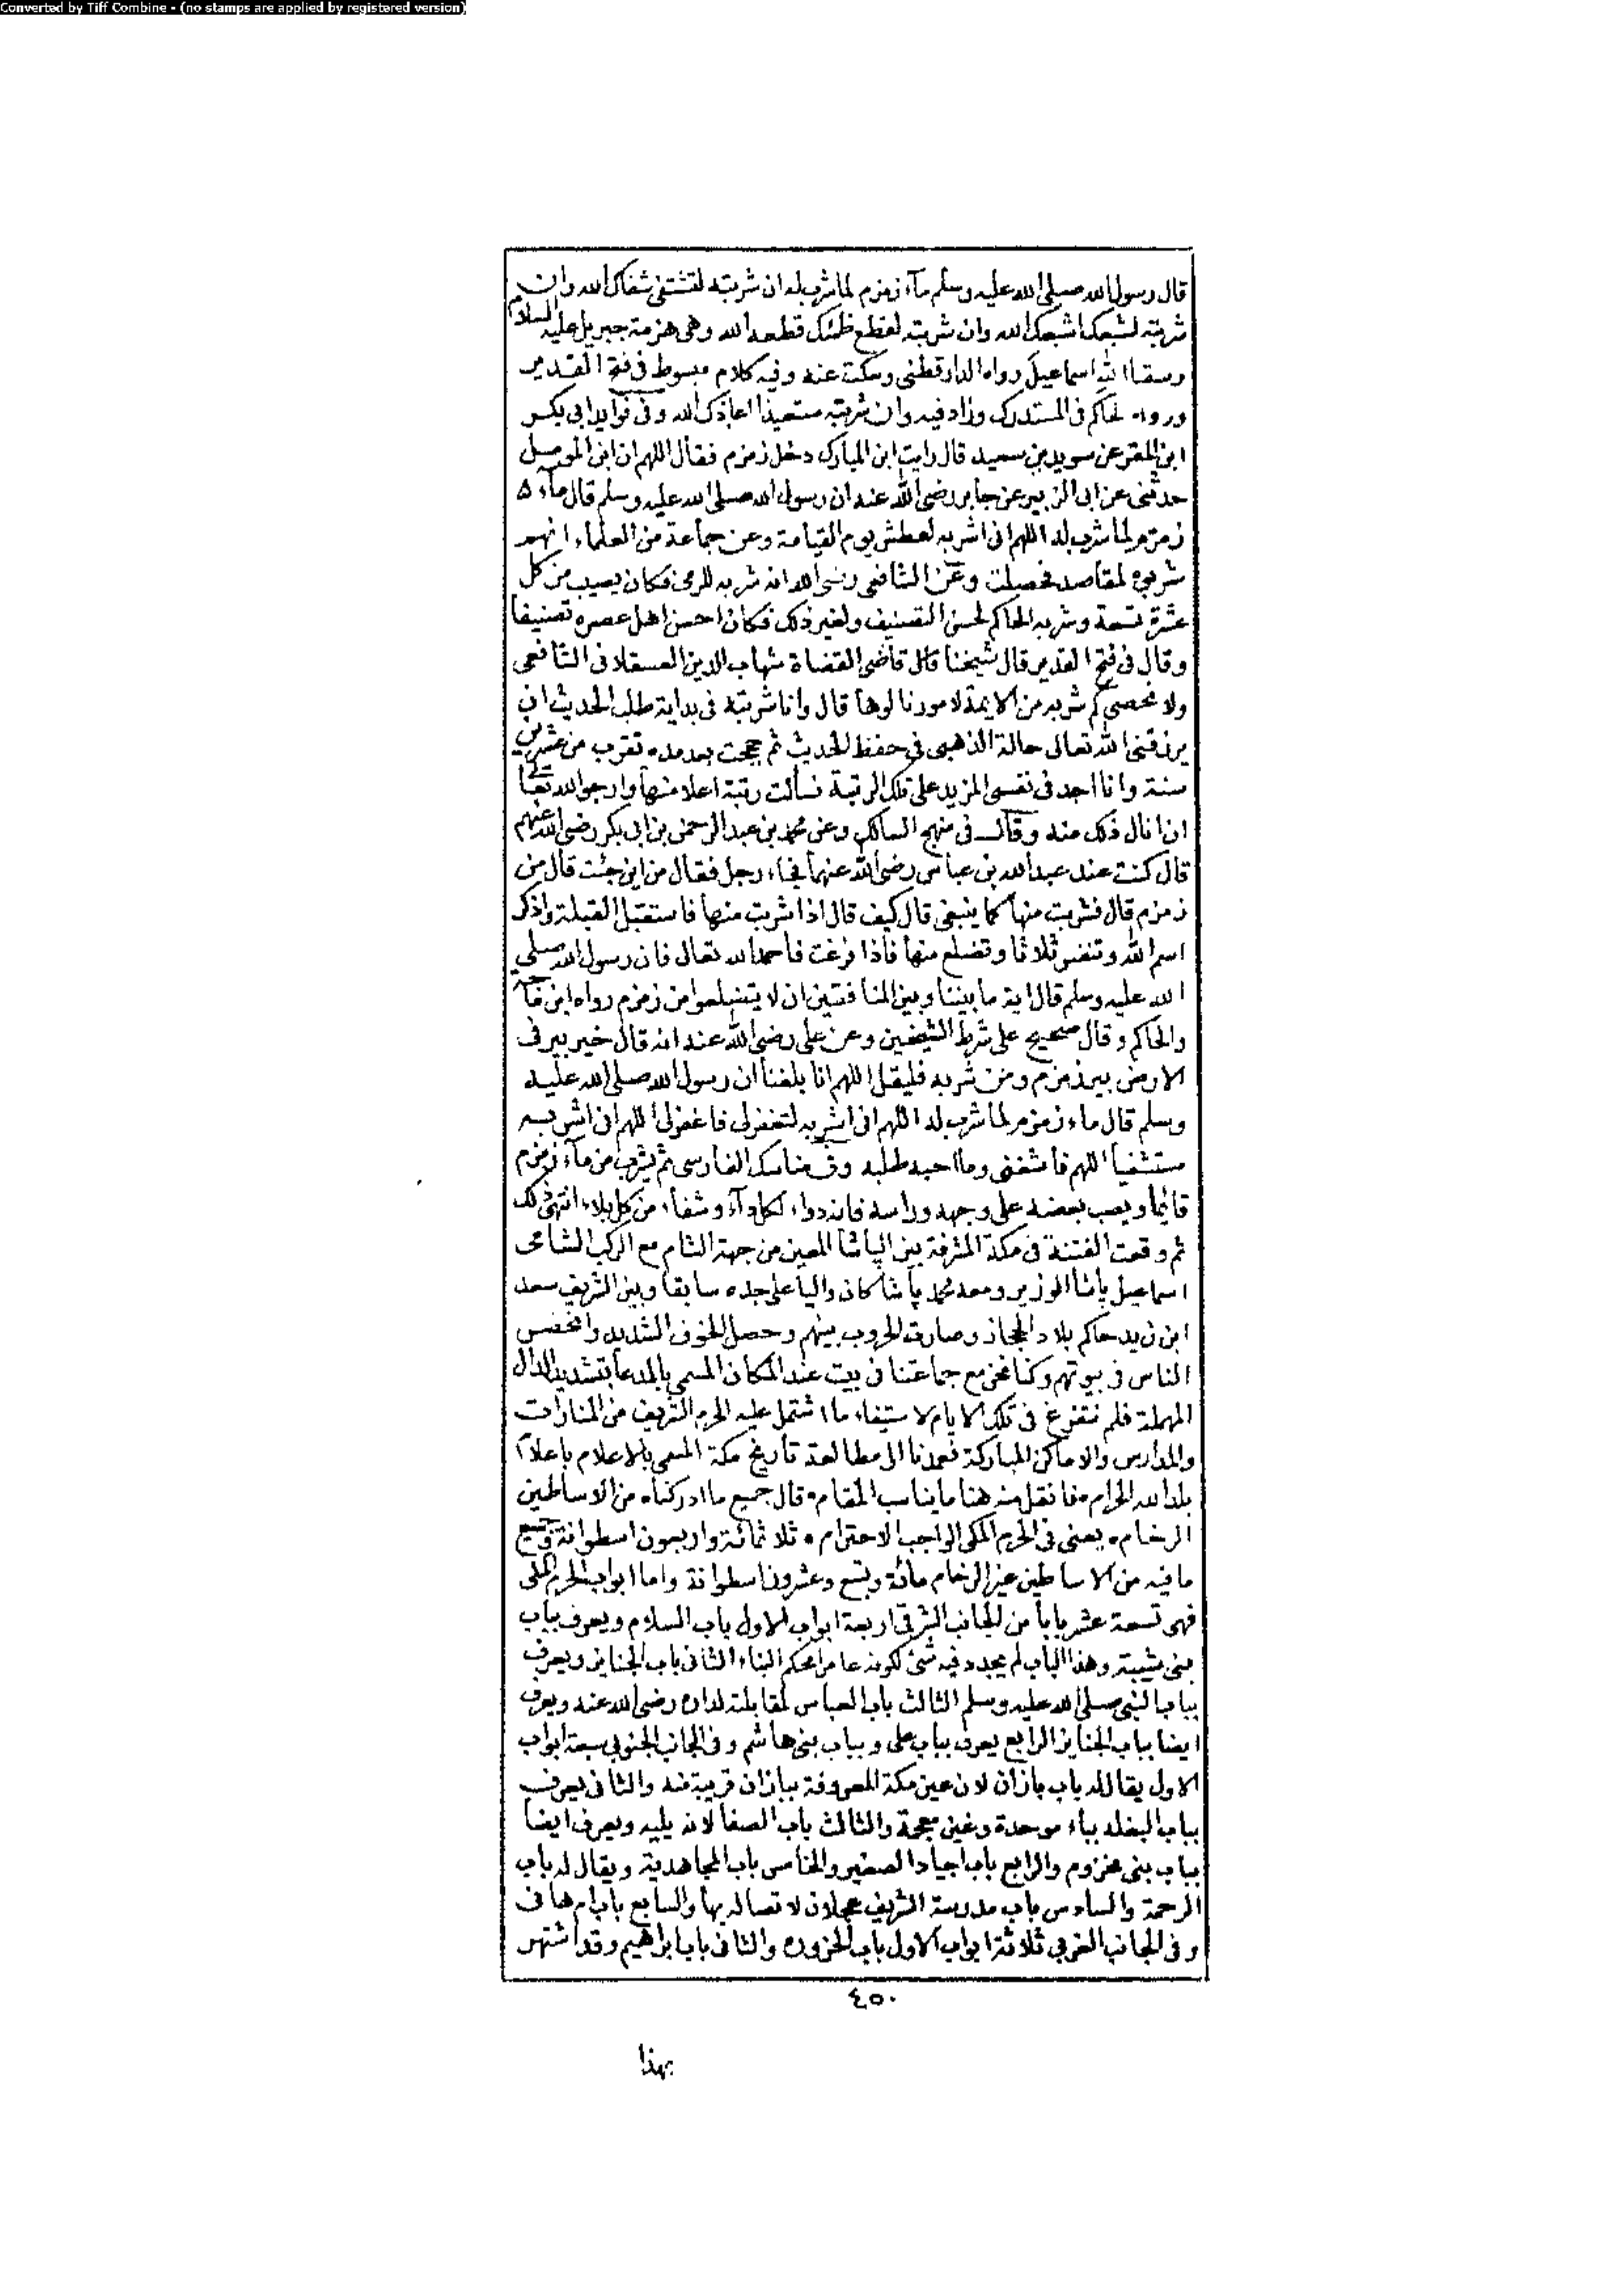 Converted by Tiff Combine - (no stamps are applied by registered version)
قال رسول الله صلى الله عليه وسلم مآء زمزم لما شرب له ان شربته لتشتفى شفاك الله وان
شربته لشبعك اشبعك الله وان شربته لقطع ظمئك قطعه الله وهى هزمة جبريل عليه السلام
وسقيا الله اسماعيل رواه الدارقطنى وسكت عنه وفيه كلام مبسوط فى فتح القدير
ورواه الحاكم فى المستدرك وزاد فيه وان شربته مستعيذا اعاذك الله وفى فوايد ابى بكر
ابن المقر عن سويد بن سعيد قال رايت ابن المبارك دخل زمزم فقال اللهم ان ابن الموصل
حدثنى عن ابى الزبير عن جابر رضى الله عنه ان رسول الله صلى الله عليه وسلم قال مآء ٥
زمزم لما شرب له اللهم انى اشربه لعطش يوم القيامة وعن جماعة من العلماء انهم
شربوه لمقاصد فحصلت وعن الشافعى رضى الله انه شربه للرمى فكان يصيب من كل
عشرة تسعة وشربه الحاكم لحسن التصنيف ولغير ذلك فكان احسن اهل عصره تصنيفا
وقال فى فتح القدير قال شيخنا قال قاضى القضاة شهاب الدين العسقلانى الشافعى
ولا يحصى كم شربه من الايمة لامور نالوها قال وانا شربته فى بداية طلب الحديث ان
يرزقنى الله تعالى حالة الذهبى فى حفظ الحديث ثم حججت بعد مده تقرب من عشرين
سنة وانا اجد فى نفسى المزيد على تلك الرتبة فسألت رتبة اعلا منها وارجو الله تعالى
ان انال ذلك منه وقال فى منهج السالك وعن محمد بن عبد الرحمن بن ابى بكر رضى الله عنهم
قال كنت عند عبد الله بن عباس رضى الله عنهما فجاء رجل فقال من اين جئت قال من
زمزم قال فشربت منها كما ينبغى قال كيف قال اذا شربت منها فاستقبل القبلة واذكر
اسم الله وتنفس ثلاثا وتضلع منها فاذا فرغت فاحمد الله تعالى فان رسول الله صلى
الله عليه وسلم قال اية ما بيننا وبين المنافقين ان لا يتضلعوا من زمزم رواه ابن ماجه
والحاكم وقال صحيح على شرط الشيخين وعن على رضى الله عنه انه قال خير بير فى
الارض بير زمزم ومن شربه فليقل اللهم انا بلغنا ان رسول الله صلى الله عليه
وسلم قال ماء زمزم لما شرب له اللهم انى اشربه لتغفر لى فاغفر لى اللهم انى اشربه
مستشفيا اللهم فاشفنى وما احبه طلبه وفى مناسك الفارسى ثم يشرب من مآء زمزم
قائما ويصب بعضه على وجهه وراسه فانه دواء لكل دآء وشفاء من كل بلاء انتهى ذلك
ثم وقعت الفتنة فى مكة المشرفة بين الباشا المعين من جهة الشام مع الركب الشامى
اسماعيل باشا الوزير ومعه محمد باشا كان واليا على جده سابقا وبين الشريف سعد
ابن زيد حاكم بلاد الحجاز وصارت الحروب بينهم وحصل الخوف الشديد وانحصر
الناس فى بيوتهم وكنا نحن مع جماعتنا فى بيت عند المكان المسمى بالمدعا بتشديد الدال
المهملة فلم نتفرغ فى تلك الايام لاستيفاء ما اشتمل عليه الحرم الشريف من المنارات
والمدارس والاماكن المباركة فعدنا الى مطالعة تاريخ مكة المسمى بالاعلام باعلام
بلد الله الحرام فانقل منه هنا ما يناسب المقام قال جميع ما ادركناه من الاساطين
الرخام يعنى فى الحرم المكى الواجب الاحترام ثلاثمائة واربعون اسطوانة وجميع
ما فيه من الاساطين غير الرخام مائة وتسع وعشرون اسطوانة واما ابواب الحرم المكى
فهى تسعة عشر بابا من الجانب الشرقى اربعة ابواب الاول باب السلام ويعرف بباب
بنى شيبة وهذا الباب لم يجدد فيه شئ لكونه عامرا محكم البناء الثانى باب الجنايز ويعرف
بباب النبى صلى الله عليه وسلم الثالث باب العباس لمقابلته لداره رضى الله عنه ويعرف
ايضا بباب الجنايز الرابع يعرف بباب على وبباب بنى هاشم وفى الجانب الجنوبى سبعة ابواب
الاول يقال له باب بازان لان عين مكة المعروفة ببازان قريبة منه والثانى يعرف
بباب البغله بباء موحدة وغين معجمة والثالث باب الصفا لانه يليه ويعرف ايضا
بباب بنى مخزوم والرابع باب اجياد الصغير والخامس باب المجاهدية ويقال له باب
الرحمة والسادس باب مدرسة الشريف عجلان لاتصاله بها والسابع باب ام هانى
وفى الجانب الغربى ثلاثة ابواب الاول باب الحزوره والثانى باب ابراهيم وقد اشتهر
٤٥٠
بهذا